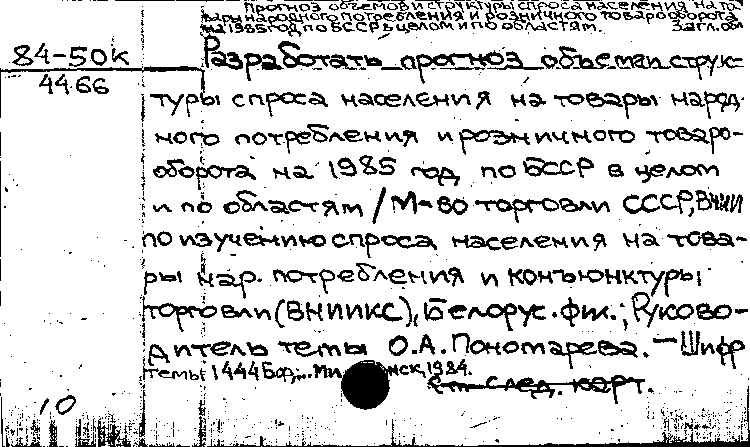 Прогноз объемов и структуры спроса населения на то-
вары народного потребления и розничного товарооборота
на 1985 год по БССР в целом и по областям. Загл. обл
84-50к
4466
Разработать прогноз объема и струк-
туры спроса населения на товары народ-
ного потребления и розничного товаро-
оборота на 1985 год по БССР в целом
и по областям / М-во торговли СССР, ВНИИ
по изучению спроса населения на това-
ры нар. потребления и конъюнктуры
торговли (ВНИИКС), Белорус. фил.; Руково-
дитель темы О.А. Пономарева. — Шифр
темы 1444 Бф;... Мн нск, 1984.
См след. карт.
10